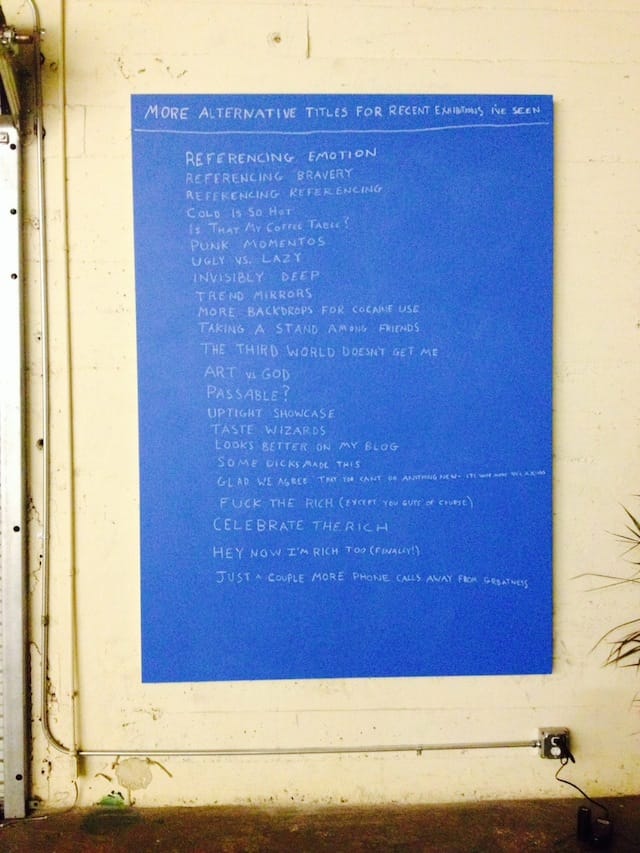 MORE ALTERNATIVE TITLES FOR RECENT EXHIBITIONS I'VE SEEN
REFERENCING EMOTION
REFERENCING BRAVERY
REFERENCING REFERENCING
COLD IS SO HOT
IS THAT MY COFFEE TABLE?
PUNK MOMENTOS
UGLY VS. LAZY
INVISIBLY DEEP
TREND MIRRORS
MORE BACKDROPS FOR COCAINE USE
TAKING A STAND AMONG FRIENDS
THE THIRD WORLD DOESN'T GET ME
ART VS GOD
PASSABLE?
UPTIGHT SHOWCASE
TASTE WIZARDS
LOOKS BETTER ON MY BLOG
SOME DICKS MADE THIS
GLAD WE AGREE THAT YOU CAN'T DO ANYTHING NEW - IT'S WAY MORE RELAXING
FUCK THE RICH (EXCEPT YOU GUYS OF COURSE)
CELEBRATE THE RICH
HEY NOW I'M RICH TOO (FINALLY!)
JUST A COUPLE MORE PHONE CALLS AWAY FROM GREATNESS